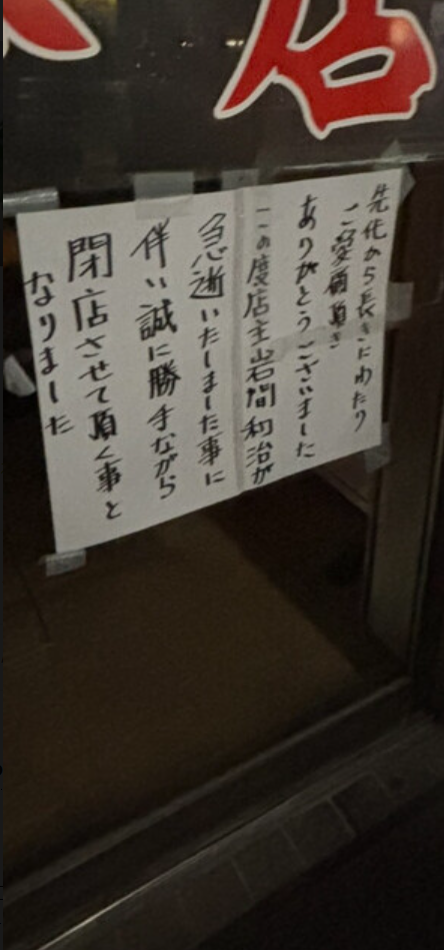 店
先代から長きにわたり
ご愛顧頂き
ありがとうございました
この度店主岩間和治が
急逝いたしました事に
伴い誠に勝手ながら
閉店させて頂く事と
なりました